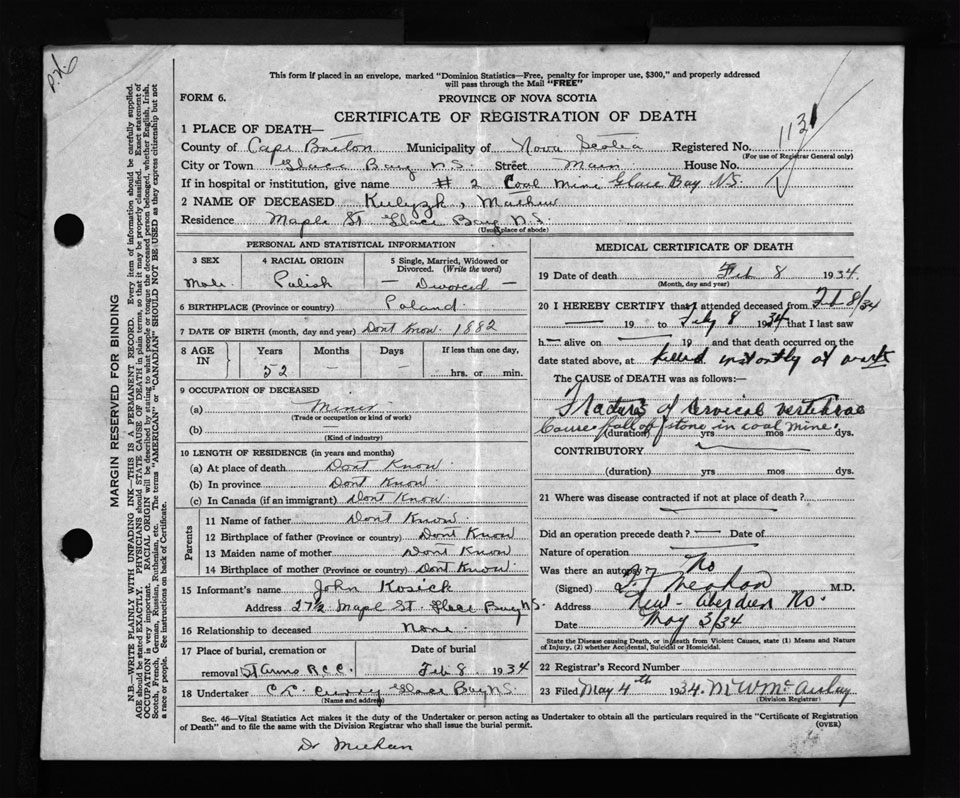 P.N.
This form if placed in an envelope, marked "Dominion Statistics—Free, penalty for improper use, $300," and properly addressed
will pass through the Mail "FREE"
FORM 6.
PROVINCE OF NOVA SCOTIA
CERTIFICATE OF REGISTRATION OF DEATH
1 PLACE OF DEATH—
County of Cape Breton Municipality of Nova Scotia Registered No. 1131
(For use of Registrar General only)
City or Town Glace Bay N.S. Street Main House No.
If in hospital or institution, give name # 2 Coal Mine Glace Bay NS.
2 NAME OF DECEASED Kulyzk, Mathew
Residence Maple St Glace Bay N.S.
(Usual place of abode)
PERSONAL AND STATISTICAL INFORMATION
3 SEX 4 RACIAL ORIGIN 5 Single, Married, Widowed or
Divorced. (Write the word)
Male. Polish — Divorced —
6 BIRTHPLACE (Province or country) Poland.
7 DATE OF BIRTH (month, day and year) Dont Know. 1882
8 AGE IN Years Months Days If less than one day,
52 — — hrs. or min.
9 OCCUPATION OF DECEASED
(a) Miner
(Trade or occupation or kind of work)
(b) —
(Kind of industry)
10 LENGTH OF RESIDENCE (in years and months)
(a) At place of death Dont Know.
(b) In province Dont Know
(c) In Canada (if an immigrant) Dont Know
Parents
11 Name of father Dont Know.
12 Birthplace of father (Province or country) Dont Know
13 Maiden name of mother Dont Know
14 Birthplace of mother (Province or country) Dont Know.
15 Informant's name John Kosick
Address 27½ Mapl St. Glace Bay N.S.
16 Relationship to deceased None.
17 Place of burial, cremation or Date of burial
removal St Anns R.C.C. Feb 8. 1934
18 Undertaker C.C. Curry Glace Bay N.S.
(Name and address)
MEDICAL CERTIFICATE OF DEATH
19 Date of death Feb 8 1934.
(Month, day and year)
20 I HEREBY CERTIFY that I attended deceased from Feb 8/34
— 19 to Feby 8 1934 that I last saw
h— alive on — 19 and that death occurred on the
date stated above, at killed instantly at work
The CAUSE OF DEATH was as follows:—
Fracture of cervical vertebrae
Cause fall of stone in coal mine.
(duration) yrs mos dys.
CONTRIBUTORY
(duration) yrs mos dys.
21 Where was disease contracted if not at place of death?
Did an operation precede death? — Date of
Nature of operation
Was there an autopsy? No
(Signed) Meahan M.D.
Address New-Aberdeen No.
Date May 3/34
State the Disease causing Death, or in death from Violent Causes, state (1) Means and Nature
of Injury, (2) whether Accidental, Suicidal or Homicidal.
22 Registrar's Record Number
23 Filed May 4th 1934. M W McAulay
(Division Registrar)
Sec. 46—Vital Statistics Act makes it the duty of the Undertaker or person acting as Undertaker to obtain all the particulars required in the "Certificate of Registration
of Death" and to file the same with the Division Registrar who shall issue the burial permit.
(OVER)
Dr Meehan
MARGIN RESERVED FOR BINDING
N.B.—WRITE PLAINLY WITH UNFADING INK—THIS IS A PERMANENT RECORD. Every item of information should be carefully supplied.
AGE should be stated EXACTLY. PHYSICIANS should STATE CAUSE OF DEATH in plain terms, so that it may be properly classified. Exact statement of
OCCUPATION is very important. RACIAL ORIGIN will be described by stating to what people or tongue the deceased person belonged, whether English, Irish,
Scotch, French, German, Russian, Ruthenian, etc. The terms "AMERICAN" or "CANADIAN" SHOULD NOT BE USED as they express citizenship but not
a race or people. See instructions on back of Certificate.